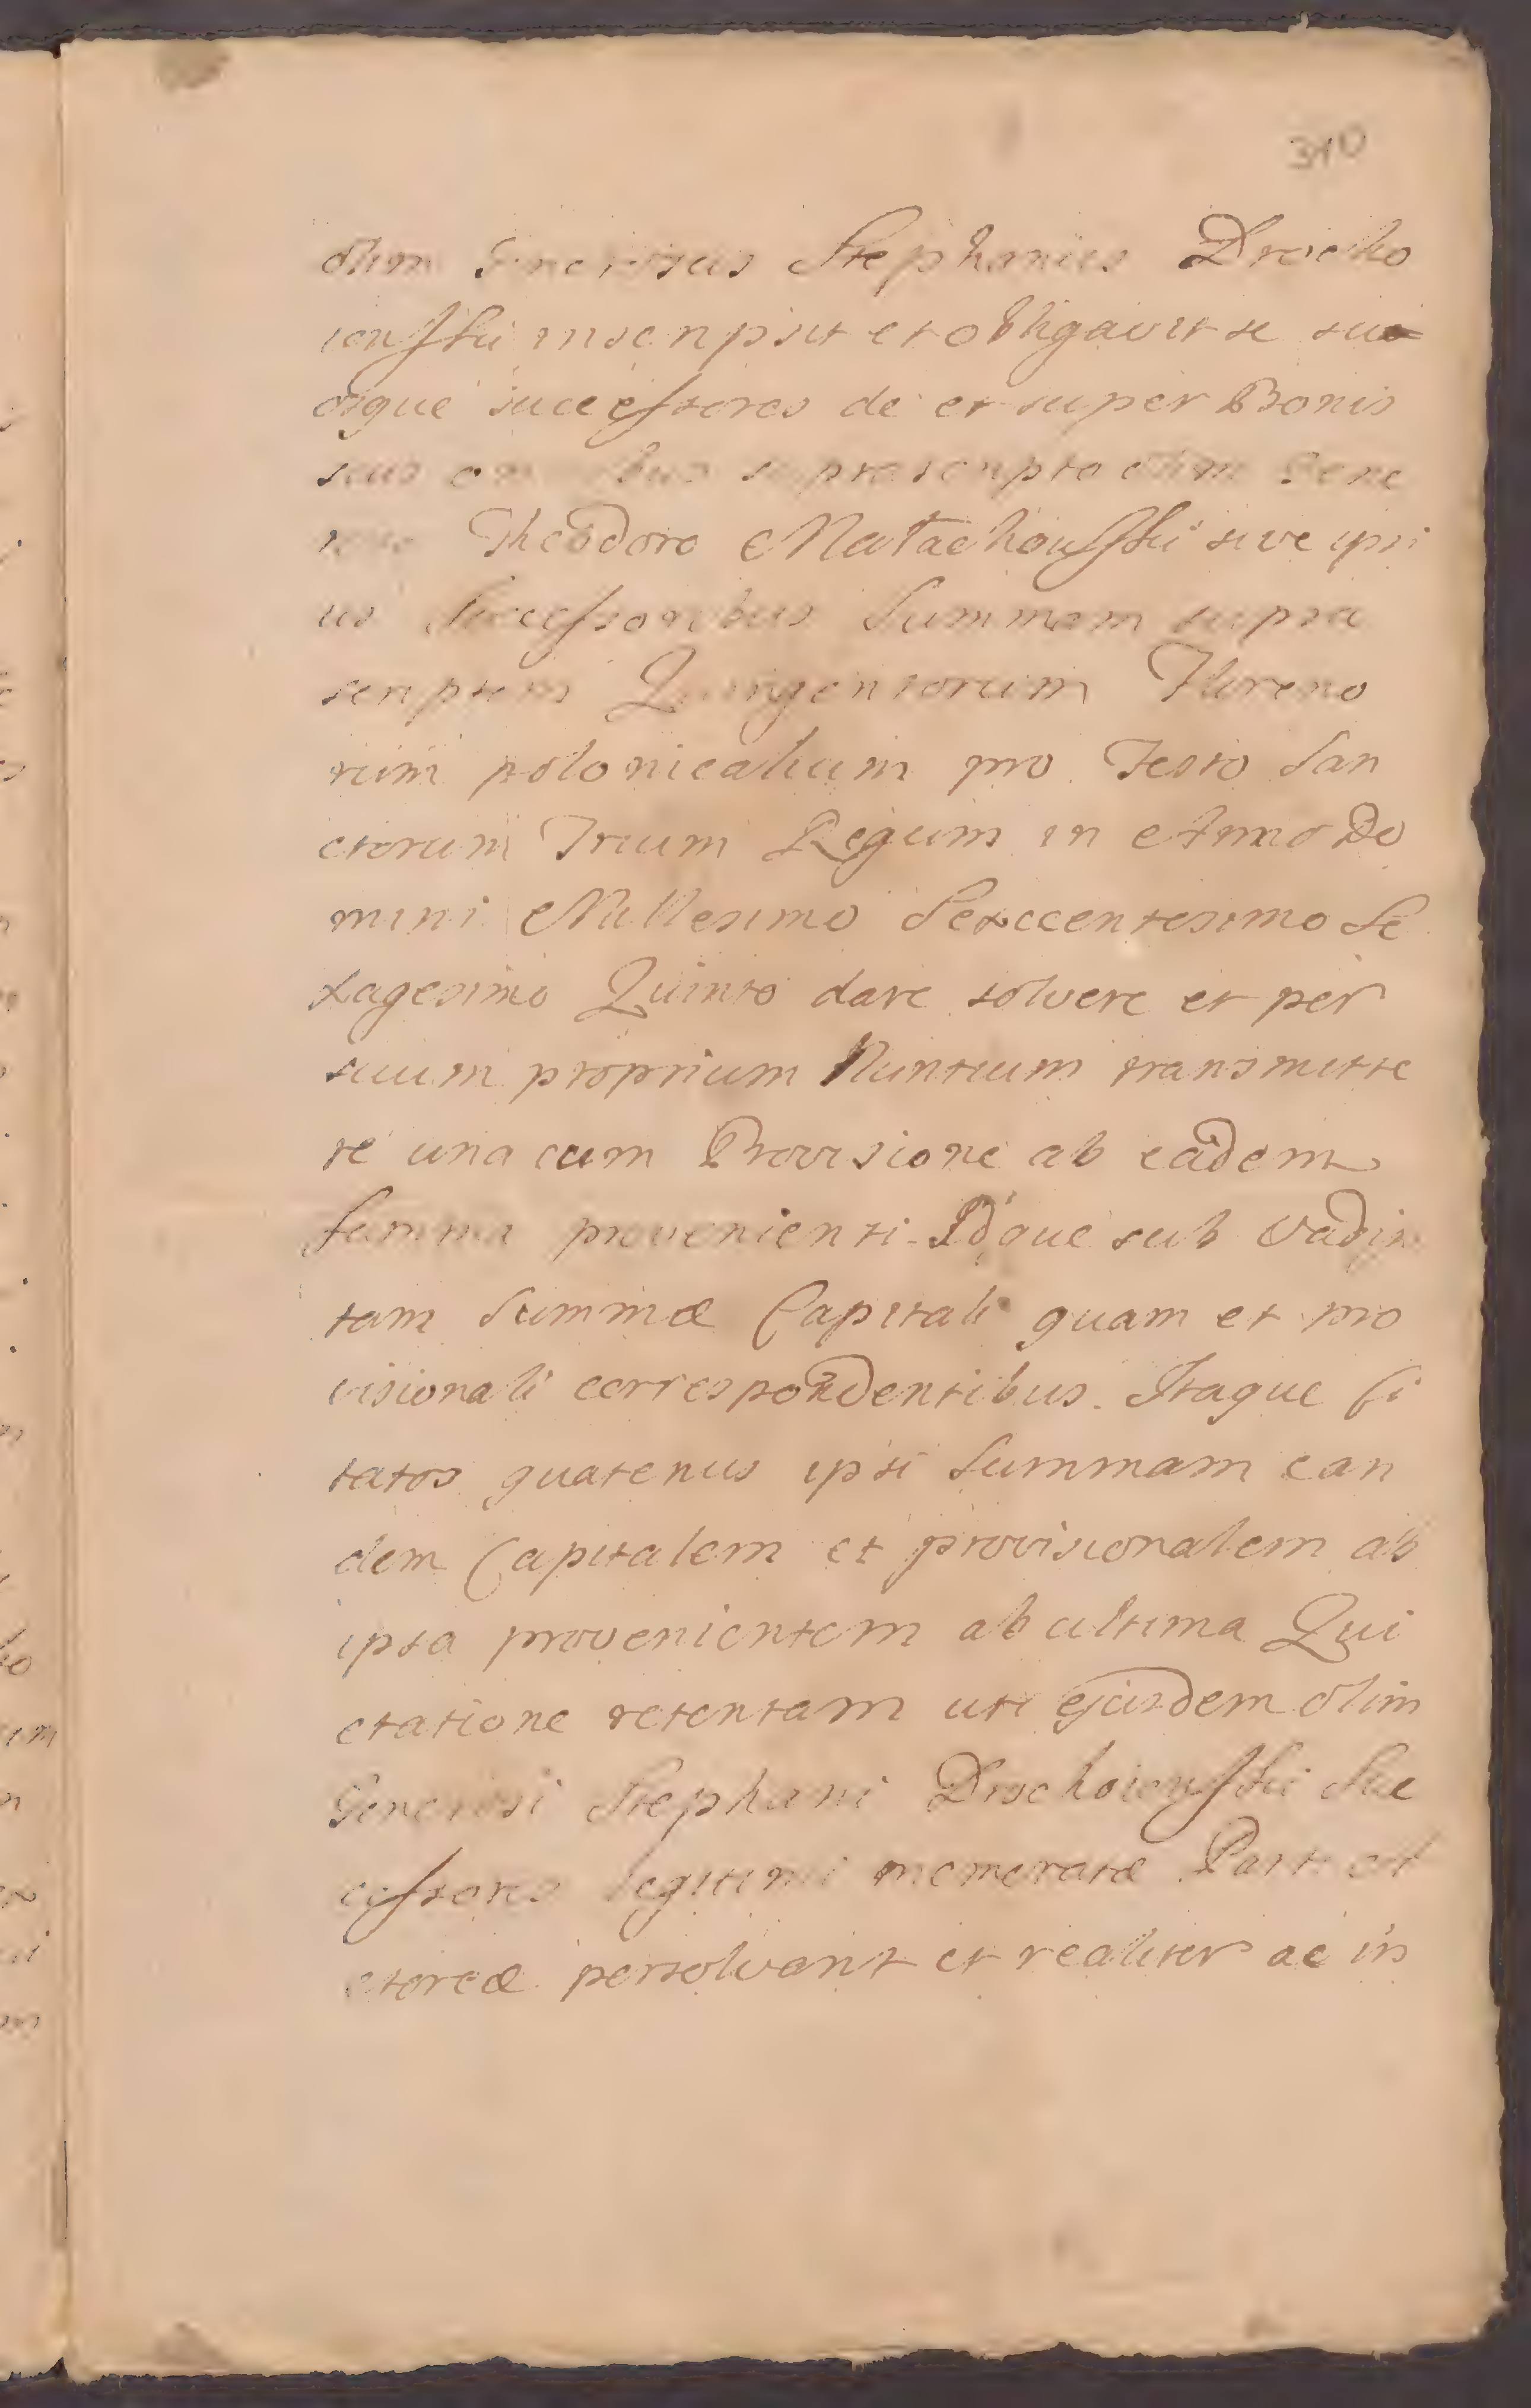 310
olim Generosus Stephanus Drocho
iowski inscripsit et obligavit se suo=
osque successores de et super Bonis
suis omnibus suprascripto olim Gene
roso Theodoro Małachowski sive ipsi
us Successoribus Summam supra
scriptam Quingentorum Floreno
rum polonicalium pro Festo San
ctorum Trium Regum in Anno Do
mini Millesimo Sexccentesimo Se
xagesimo Quinto dare solvere et per
suum proprium Nuntium transmitte
re una cum Provisione ab eadem
summa provenienti. Idque sub vadijs
tam Summæ Capitali quam et pro
visionali correspondentibus. Itaque Ci
tatos quatenus ipsi Summam ean
dem Capitalem et provisionalem ab
ipsa provenientem ab ultima Qui
etatione retentam uti ejusdem olim
Generosi Stephani Drochoiowski Suc
cessores legitimi memoratæ Parti
ctoreæ persolvant et realiter ac in